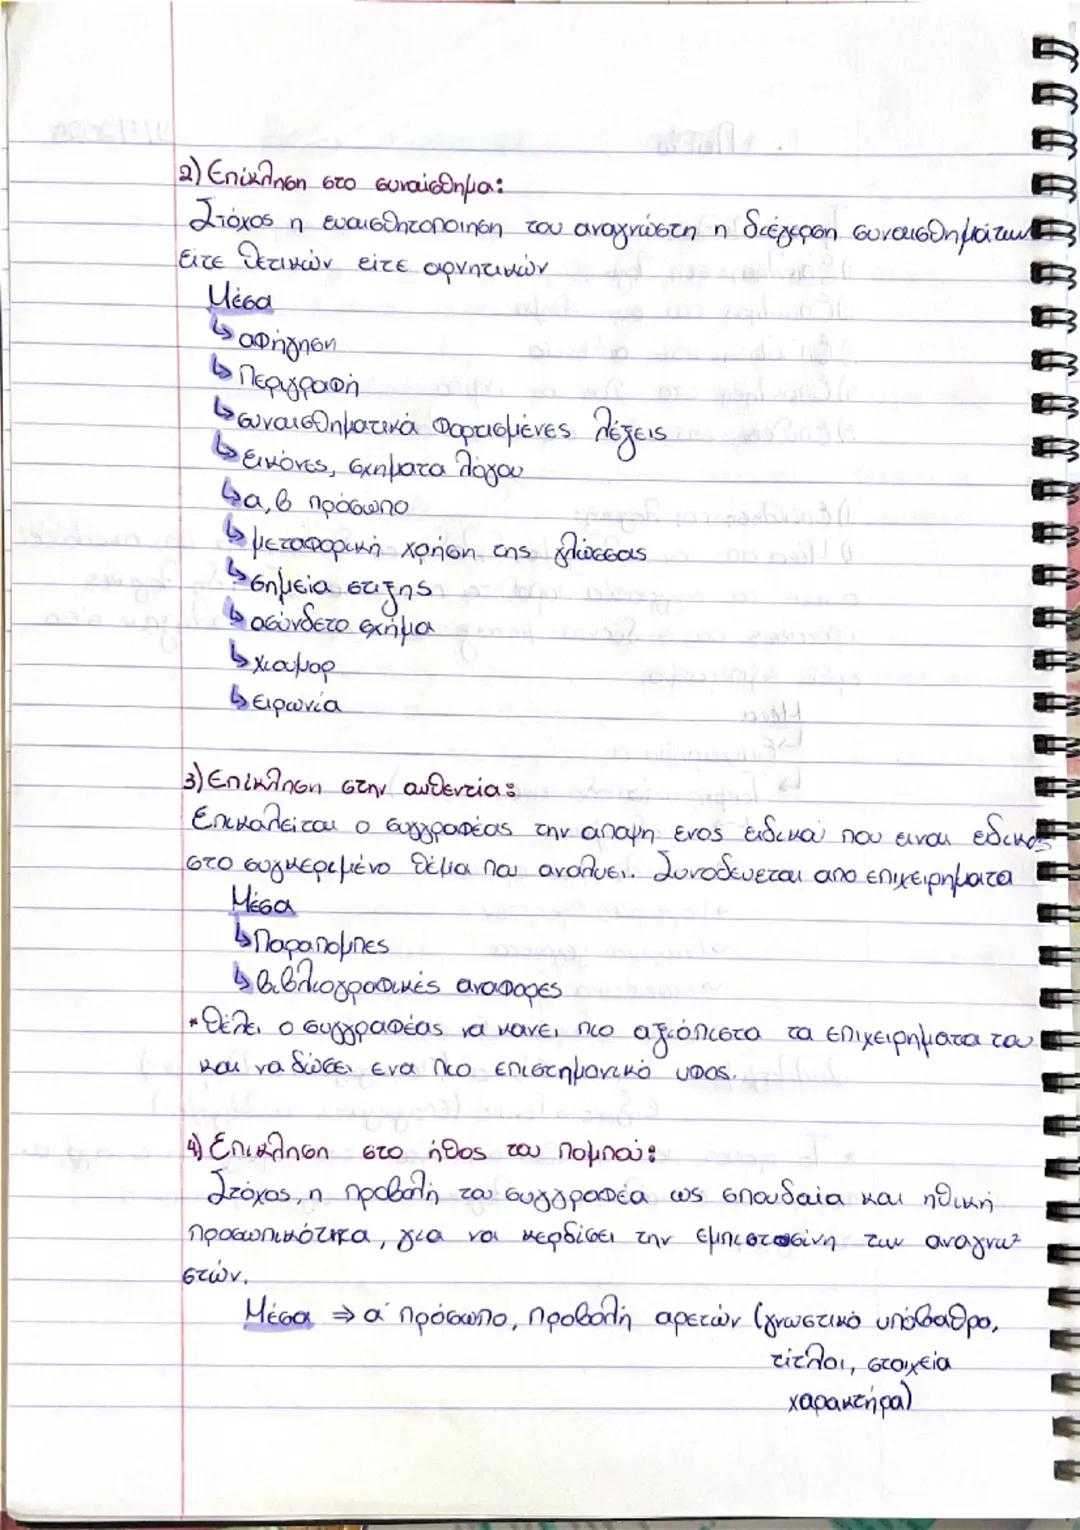 2) Επίκληση στο συναίσθημα:
Στόχος η ευαισθητοποιηση του αναγνώστη η διέγερση συναισθημάτων
είτε θετικών είτε αρνητικών
Μέσα
↳ αφήγηση
↳ Περιγραφή
↳ συναισθηματικά φορτισμένες λέξεις
↳ εικόνες, σχηματα λόγου
↳ α, β πρόσωπο
↳ μεταφορική χρήση της γλώσσας
↳ σημεία στιξης
↳ ασύνδετο σχήμα
↳ χιουμορ
↳ ειρωνία
3) Επίκληση στην αυθεντία:
Επικαλείται ο συγγραφέας την αποψη ενος ειδικού που ειναι εδικος
στο συγκεριμένο θέμα που αναλυει. Συνοδευεται απο επιχειρηματα
Μέσα
↳ Παραπομπες
↳ βιβλιογραφικές αναφορες
* Θέλει ο συγγραφέας να κανει πιο αξιόπιστα τα επιχειρηματα του
και να δώσει ενα πιο επιστημονικό υφος.
4) Επικληση στο ήθος του πομπού:
Στόχος, η προβολή του συγγραφέα ως σπουδαία και ηθική
προσωπικότητα, για να κερδίσει την εμπιστοσύνη των αναγνω-
στών.
Μέσα ⇒ α' πρόσωπο, προβολή αρετών (γνωστικό υπόβαθρο,
τίτλοι, στοιχεία
χαρακτήρα)